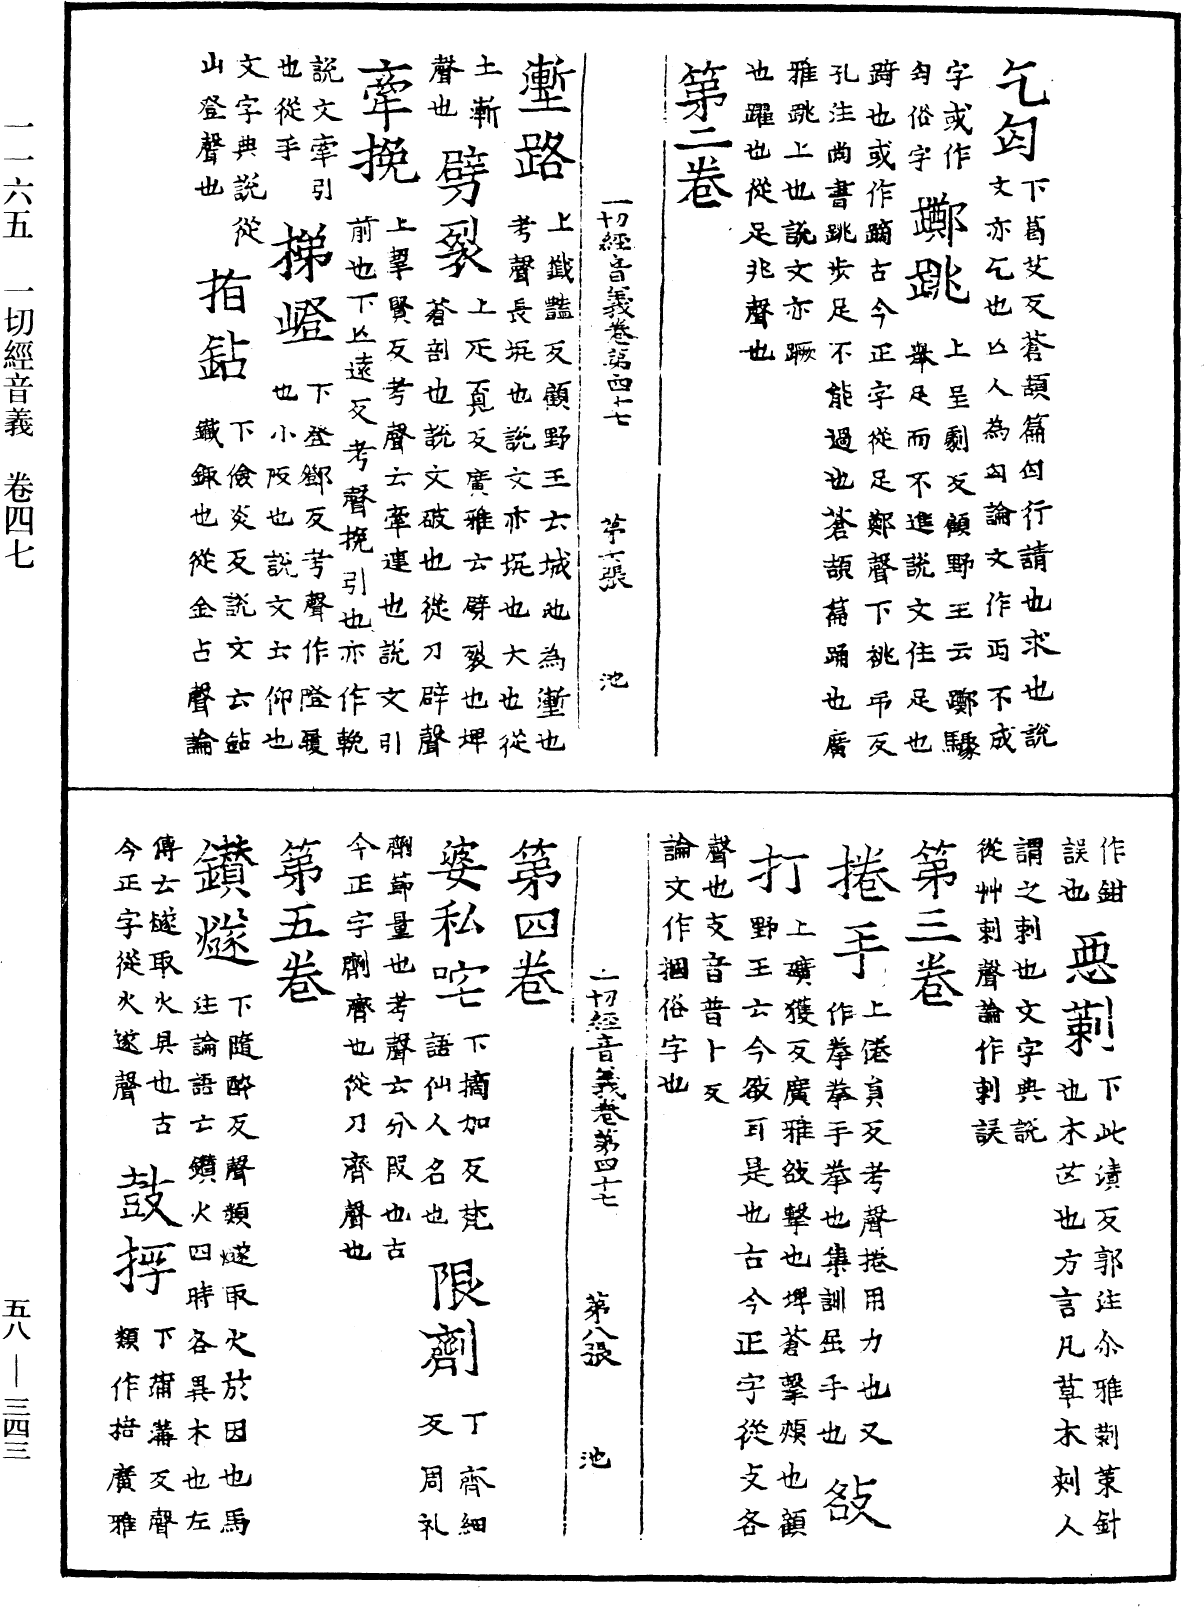 一一六五 一切經音義 卷四七
五八—三四三
乞匃 下葛艾反蒼頡篇匃行請也求也說
文亦乞也亾人為匃論文作丐不成
字或作
匃俗字 躑跳 上呈劇反顧野王云躑驟
舉足而不進說文住足也
躋也或作蹢古今正字從足鄭聲下祧弔反
孔注尚書跳步足不能過也蒼頡篇踊也廣
雅跳上也說文亦蹶
也躍也從足兆聲也
第二卷
一切經音義卷第四十七 第七張 池
壍路 上籤豔反顧野王云城池為壍也
考聲長坑也說文亦坑也大也從
土漸
聲也 劈裂 上疋覓反廣雅云劈裂也埤
蒼剖也說文破也從刀辟聲
牽挽 上挈賢反考聲云牽連也說文引
前也下亾遠反考聲挽引也亦作輓
說文牽引
也從手 梯嶝 下登鄧反考聲作隥履
也小阪也說文云仰也
文字典說從
山登聲也 㧗鉆 下儉炎反說文云鉆
鐵鋷也從金占聲論
作鉗
誤也 惡莿 下此漬反郭注尒雅莿策針
也木芒也方言凡草木刾人
謂之莿也文字典說
從艸刺聲論作刺誤
第三卷
捲手 上倦員反考聲捲用力也又
作拳拳手拳也集訓屈手也 㪾
打 上礦獲反廣雅㪾擊也埤蒼擊頰也顧
野王云今㪾耳是也古今正字從攴各
聲也攴音普卜反
論文作摑俗字也
一切經音義卷第四十七 第八張 池
第四卷
婆私咤 下摘加反梵
語仙人名也 限劑 丁齊細
反周礼
劑節量也考聲云分段也古
今正字劑齊也從刀齊聲也
第五卷
鑽燧 下隨醉反聲類燧取火於因也馬
注論語云鑽火四時各異木也左
傳云燧取火具也古
今正字從火遂聲 鼓捊 下䨜溝反聲
類作掊廣雅